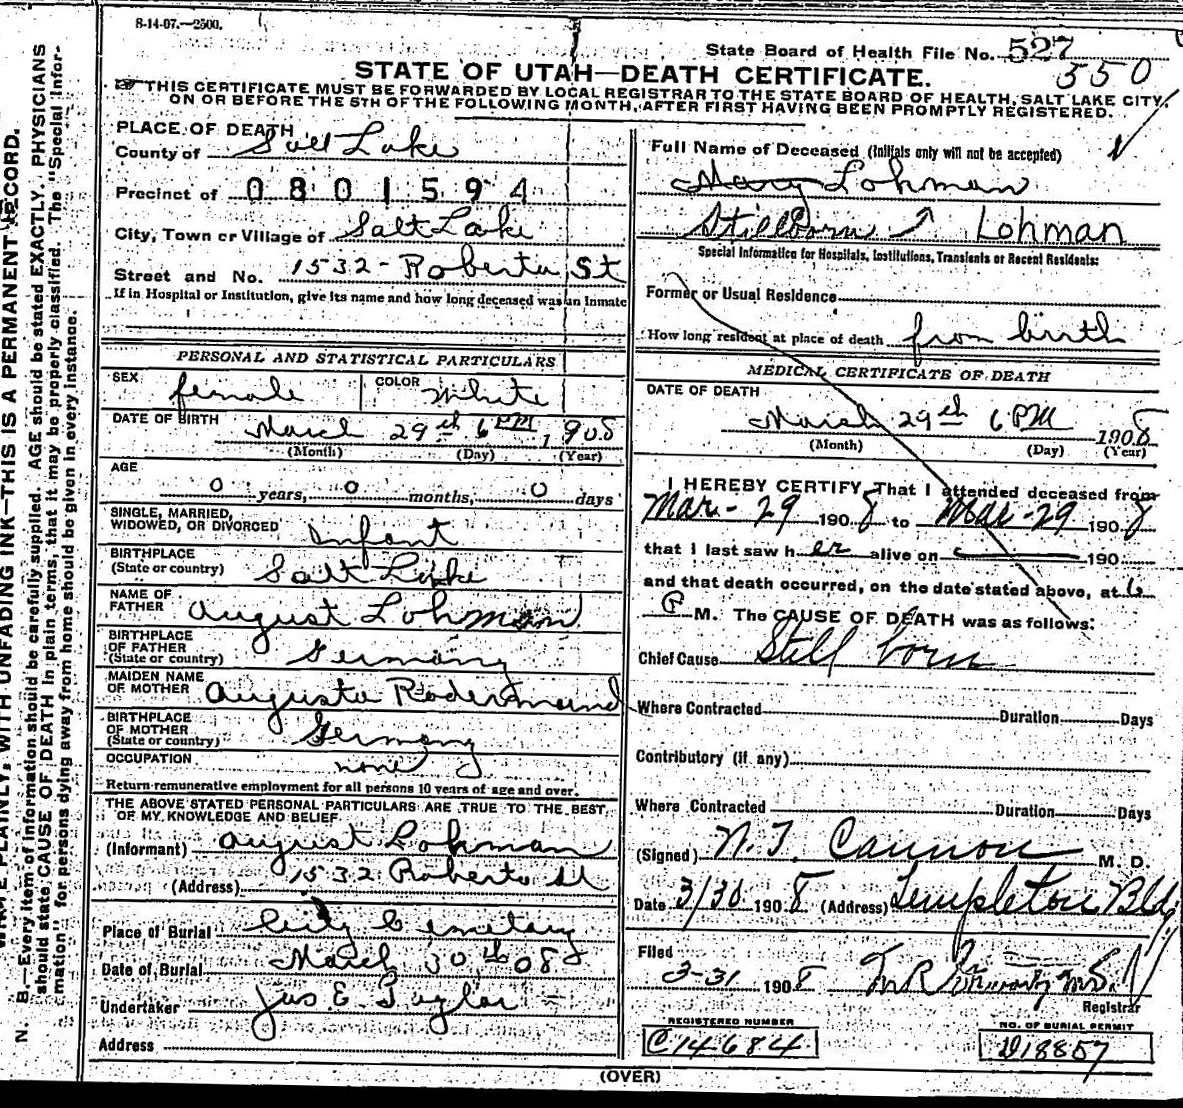 8-14-07.—2500.
State Board of Health File No. 527
350
STATE OF UTAH—DEATH CERTIFICATE.
THIS CERTIFICATE MUST BE FORWARDED BY LOCAL REGISTRAR TO THE STATE BOARD OF HEALTH, SALT LAKE CITY,
ON OR BEFORE THE 5TH OF THE FOLLOWING MONTH, AFTER FIRST HAVING BEEN PROMPTLY REGISTERED.
PLACE OF DEATH
County of Salt Lake
Precinct of 0801594
City, Town or Village of Salt Lake
Street and No. 1532 - Roberta St
If in Hospital or Institution, give its name and how long deceased was an Inmate
PERSONAL AND STATISTICAL PARTICULARS
SEX female COLOR White
DATE OF BIRTH March 29th 6 PM 1908
(Month) (Day) (Year)
AGE
0 years, 0 months, 0 days
SINGLE, MARRIED,
WIDOWED, OR DIVORCED Infant
BIRTHPLACE
(State or country) Salt Lake
NAME OF
FATHER August Lohman
BIRTHPLACE
OF FATHER
(State or country) Germany
MAIDEN NAME
OF MOTHER Augusta
BIRTHPLACE
OF MOTHER
(State or country) Germany
OCCUPATION none
Return remunerative employment for all persons 10 years of age and over.
THE ABOVE STATED PERSONAL PARTICULARS ARE TRUE TO THE BEST
OF MY KNOWLEDGE AND BELIEF
(Informant) August Lohman
(Address) 1532 Roberta St
Place of Burial City Cemetary
Date of Burial March 30th 08
Undertaker Jos E. Taylor
Address
Full Name of Deceased (Initials only will not be accepted)
Mary Lohman
Stillborn Lohman
Special Information for Hospitals, Institutions, Transients or Recent Residents:
Former or Usual Residence
How long resident at place of death from birth
MEDICAL CERTIFICATE OF DEATH
DATE OF DEATH
March 29th 6 PM 1908
(Month) (Day) (Year)
I HEREBY CERTIFY, That I attended deceased from
Mar. - 29 1908 to Mar - 29 1908
that I last saw her alive on 190
and that death occurred, on the date stated above, at 6
P M. The CAUSE OF DEATH was as follows:
Chief Cause Still born
Where Contracted Duration Days
Contributory (if any)
Where Contracted Duration Days
(Signed) N. T. Cannon M. D.
Date 3/30 1908 (Address) Templeton Bldg
Filed
3-31 1908
Registrar
REGISTERED NUMBER
C14684
NO. OF BURIAL PERMIT
D18857
(OVER)
N. B.—Every item of information should be carefully supplied. AGE should be stated EXACTLY. PHYSICIANS
should state CAUSE OF DEATH in plain terms, that it may be properly classified. The "Special Infor-
mation" for persons dying away from home should be given in every instance.
WRITE PLAINLY, WITH UNFADING INK—THIS IS A PERMANENT RECORD.